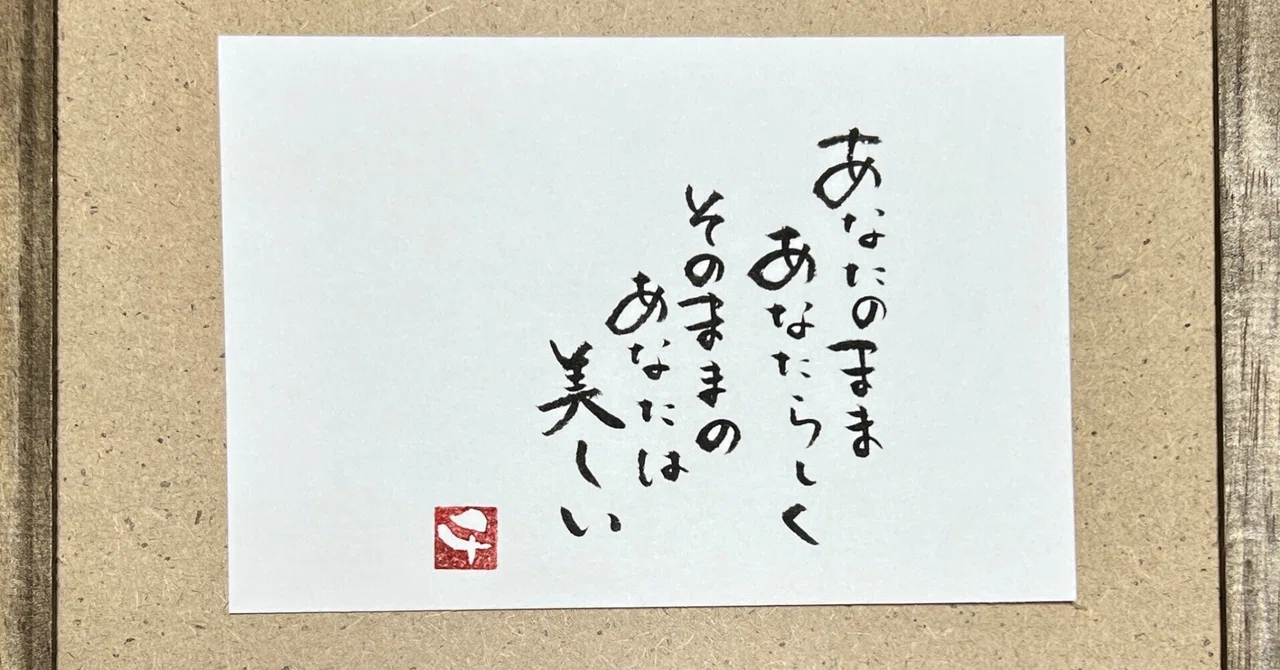 あなたのまま
あなたらしく
そのままの
あなたは
美しい